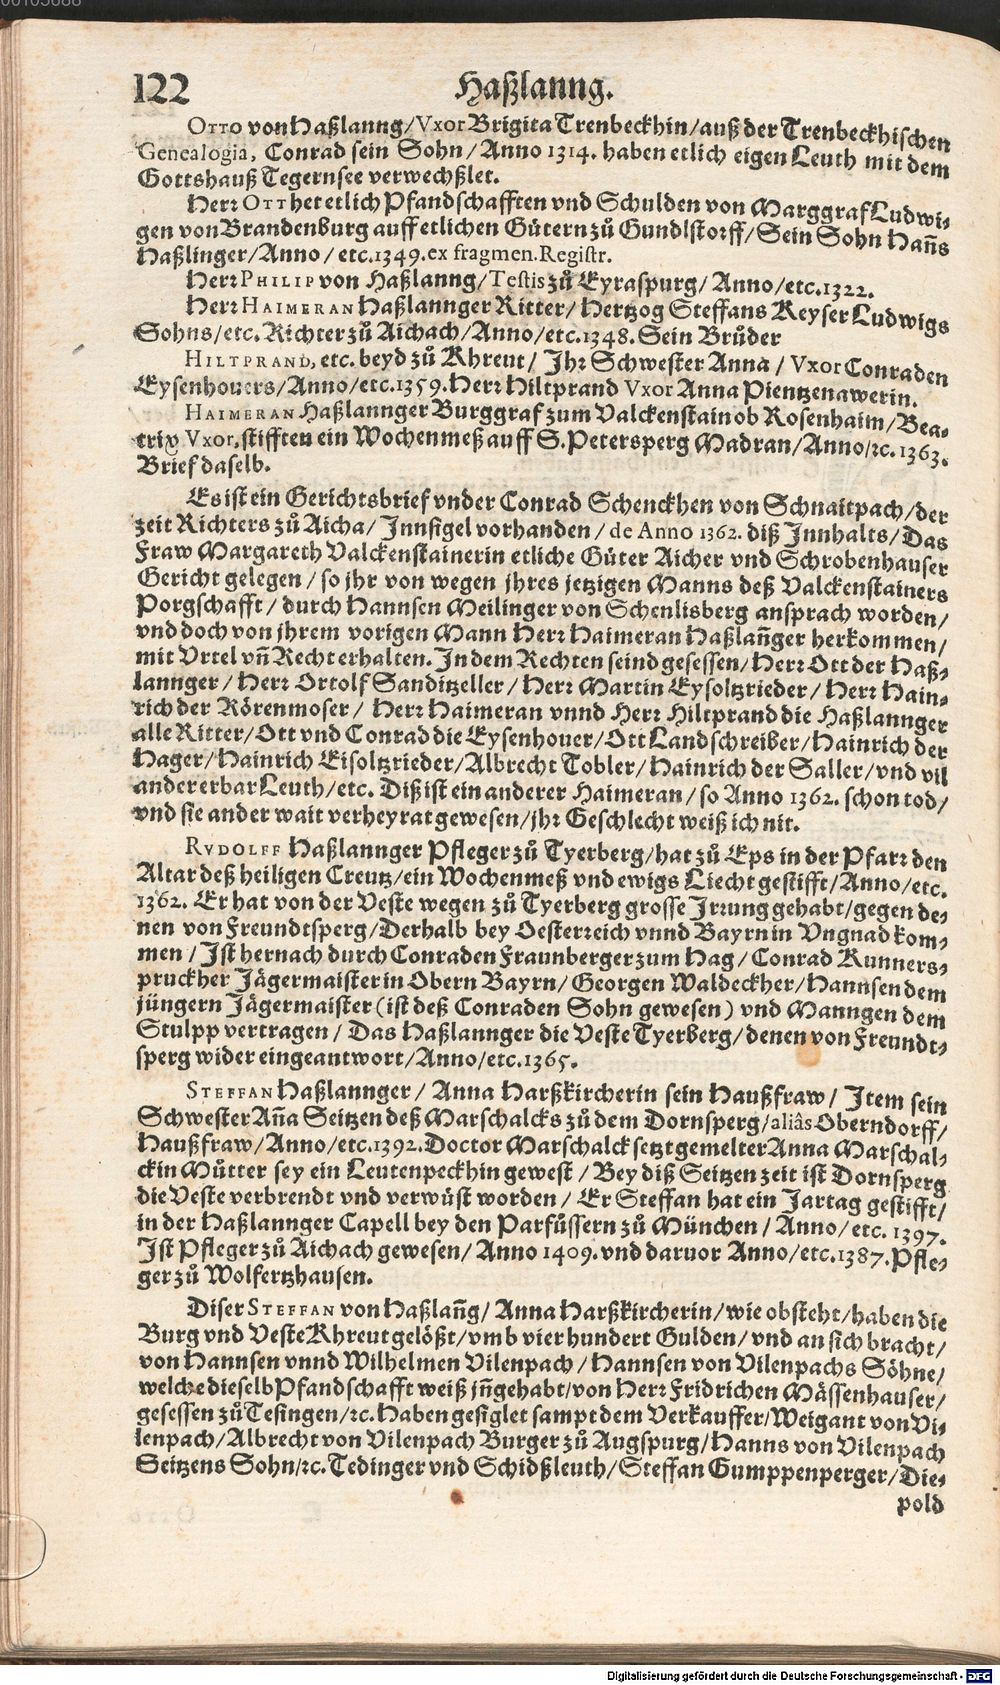 00103888
122
Haßlanng.
OTTO von Haßlanng/Vxor Brigita Trenbeckhin/auß der Trenbeckhischen
Genealogia, Conrad sein Sohn/Anno 1314. haben etlich eigen Leuth mit dem
Gottshauß Tegernsee verwechßlet.
Herr OTT het etlich Pfandschafften vnd Schulden von Marggraf Ludwi-
gen von Brandenburg auff etlichen Gütern zů Gundlstorff/Sein Sohn Hañs
Haßlinger/Anno/etc.1349. ex fragmen. Registr.
Herr PHILIP von Haßlanng/Testis zů Eyraspurg/Anno/etc.1322.
Herr HAIMERAN Haßlannger Ritter/Hertzog Steffans Keyser Ludwigs
Sohns/etc. Richter zů Aichach/Anno/etc.1348. Sein Brůder
HILTPRAND, etc. beyd zů Khreut/Jhr Schwester Anna/Vxor Conraden
Eysenhouers/Anno/etc.1359. Herr Hiltprand Vxor Anna Pientzenawerin.
HAIMERAN Haßlannger Burggraf zum Valckenstain ob Rosenhaim/Bea-
trix Vxor, stifften ein Wochenmeß auff S. Petersperg Madran/Anno/ꝛc. 1363.
Brief daselb.
Es ist ein Gerichtsbrief vnder Conrad Schenckhen von Schnaitpach/der
zeit Richters zů Aicha/Jnnsigel vorhanden/de Anno 1362. diß Jnnhalts/Das
Fraw Margareth Valckenstainerin etliche Güter Aicher vnd Schrobenhauser
Gericht gelegen/so jhr von wegen jhres jetzigen Manns deß Valckenstainers
Porgschafft/durch Hannsen Meilinger von Schenlisberg ansprach worden/
vnd doch von jhrem vorigen Mann Herr Haimeran Haßlañger herkommen/
mit Vrtel vñ Recht erhalten. In dem Rechten seind gesessen/Herr Ott der Haß-
lannger/Herr Ortolf Sanditzeller/Herr Martin Eysoltzrieder/Herr Hain-
rich der Rörenmoser/Herr Haimeran vnnd Herr Hiltprand die Haßlannger
alle Ritter/Ott vnd Conrad die Eysenhouer/Ott Landschreiber/Hainrich der
Hager/Hainrich Eisoltzrieder/Albrecht Tobler/Hainrich der Saller/vnd vil
ander erbar Leuth/etc. Diß ist ein anderer Haimeran/so Anno 1362. schon tod/
vnd sie ander wait verheyrat gewesen/jhr Geschlecht weiß ich nit.
RVDOLFF Haßlannger Pfleger zů Tyerberg/hat zů Eps in der Pfarr den
Altar deß heiligen Creutz/ein Wochenmeß vnd ewigs Liecht gestifft/Anno/etc.
1362. Er hat von der Veste wegen zů Tyerberg grosse Jrrung gehabt/gegen de-
nen von Freundtsperg/Derhalb bey Oesterreich vnnd Bayrn in Vngnad kom-
men/Jst hernach durch Conraden Fraunberger zum Hag/Conrad Kunners-
pruckher Jägermaister in Obern Bayrn/Georgen Waldeckher/Hannsen dem
jüngern Jägermaister (ist deß Conraden Sohn gewesen) vnd Manngen dem
Stulpp vertragen/Das Haßlannger die Veste Tyerberg/denen von Freundt-
sperg wider eingeantwort/Anno/etc.1365.
STEFFAN Haßlannger/Anna Harßkircherin sein Haußfraw/Jtem sein
Schwester Aña Seitzen deß Marschalcks zů dem Dornsperg/aliâs Oberndorff/
Haußfraw/Anno/etc.1392. Doctor Marschalck setzt gemelter Anna Marschal-
ckin Můtter sey ein Leutenpeckhin gewest/Bey diß Seitzen zeit ist Dornsperg
die Veste verbrendt vnd verwůst worden/Er Steffan hat ein Jartag gestifft/
in der Haßlannger Capell bey den Parfüssern zů München/Anno/etc. 1397.
Jst Pfleger zů Aichach gewesen/Anno 1409. vnd daruor Anno/etc.1387. Pfle-
ger zů Wolfertzhausen.
Diser STEFFAN von Haßlañg/Anna Harßkircherin/wie obsteht/haben die
Burg vnd Veste Khreut gelößt/vmb vier hundert Gulden/vnd an sich bracht/
von Hannsen vnnd Wilhelmen Vilenpach/Hannsen von Vilenpachs Söhne/
welche dieselb Pfandschafft weiß jñgehabt/von Herr Fridrichen Mässenhauser/
gesessen zů Tesingen/ꝛc. Haben gesiglet sampt dem Verkauffer/Weigant von Vi-
lenpach/Albrecht von Vilenpach Burger zů Augspurg/Hanns von Vilenpach
Seitzens Sohn/ꝛc. Tedinger vnd Schidßleuth/Steffan Gumppenperger/Die-
pold
Digitalisierung gefördert durch die Deutsche Forschungsgemeinschaft - DFG